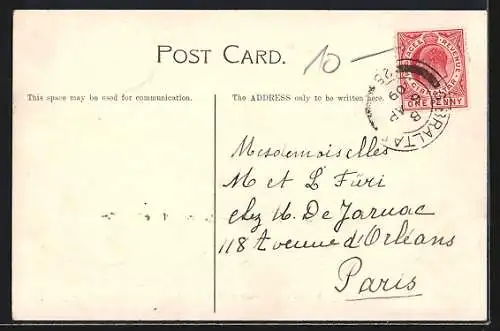 POST CARD.
10
POSTAGE & REVENUE
GIBRALTAR
ONE PENNY
GIBRALTAR
8 AP
09
This space may be used for communication.
The ADDRESS only to be written here.
Mesdemoiselles
M et L Füri
chez M. De Jarnac
118 Avenue d'Orléans
Paris